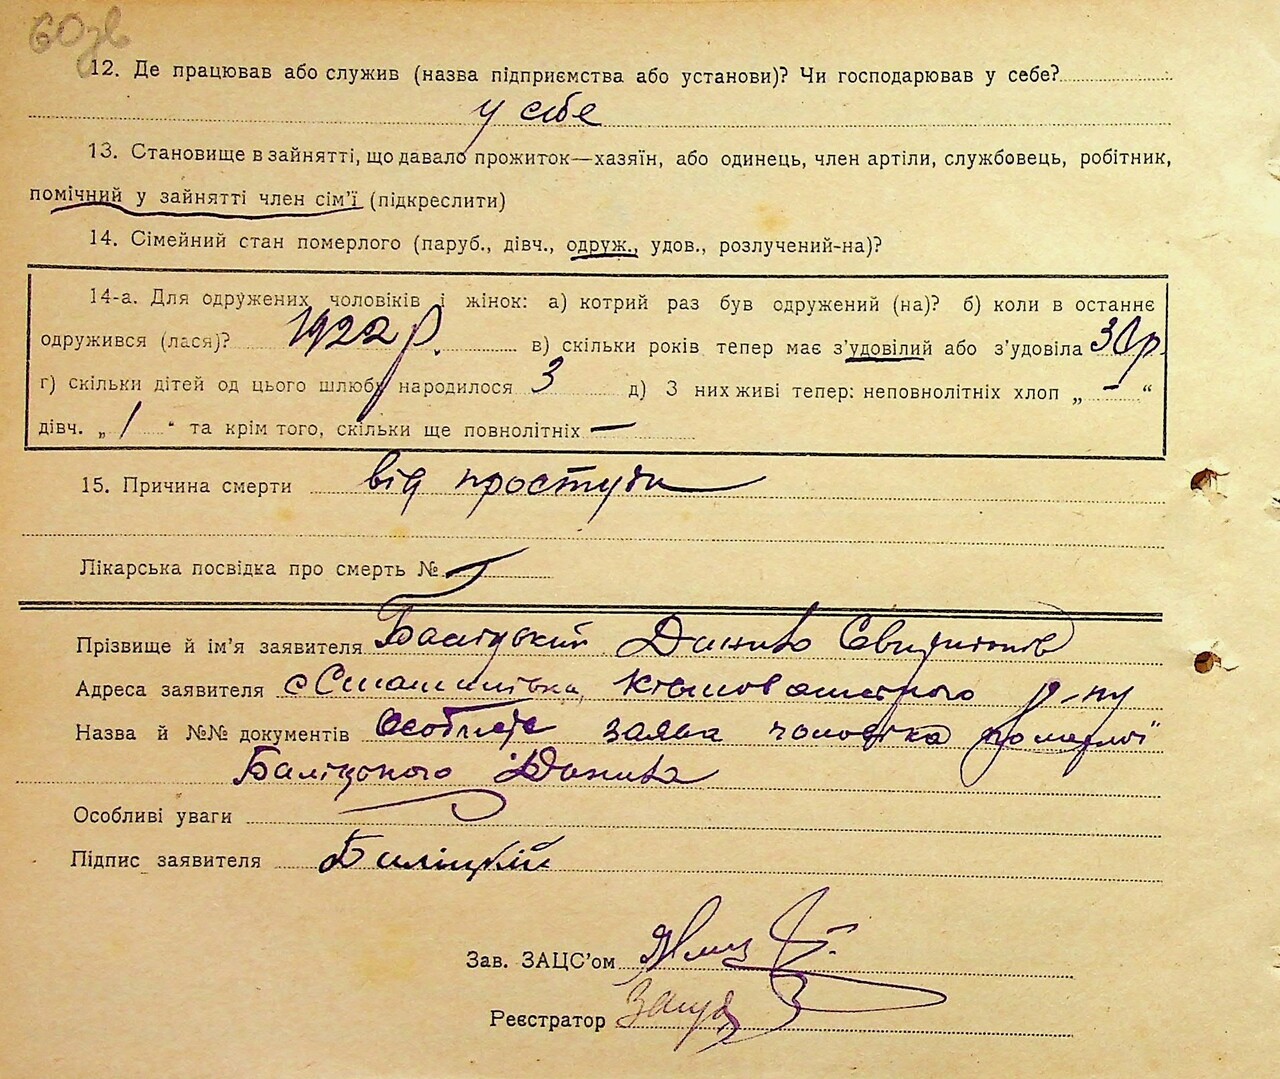 60зв
12. Де працював або служив (назва підприємства або установи)? Чи господарював у себе?
у себе
13. Становище в зайнятті, що давало прожиток—хазяїн, або одинець, член артіли, службовець, робітник,
помічний у зайнятті член сім’ї (підкреслити)
14. Сімейний стан померлого (паруб., дівч., одруж., удов., розлучений-на)?
14-а. Для одружених чоловіків і жінок: а) котрий раз був одружений (на)? б) коли в останнє
одружився (лася)? 1922 р. в) скільки років тепер має з’удовілий або з’удовіла 30 р.
г) скільки дітей од цього шлюбу народилося 3 д) З них живі тепер: неповнолітніх хлоп „ — “
дівч. „ 1 “ та крім того, скільки ще повнолітніх —
15. Причина смерти від простуди
Лікарська посвідка про смерть №
Прізвище й ім’я заявителя Баліцький Данило
Адреса заявителя с р-ну
Назва й №№ документів Особиста заява чоловіка померлої
Баліцького Данила
Особливі уваги
Підпис заявителя Баліцкий
Зав. ЗАЦС’ом
Реєстратор